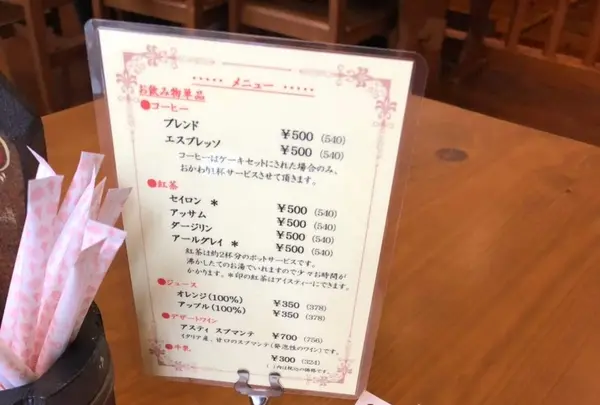 ••••• メニュー •••••
お飲み物単品
●コーヒー
ブレンド ￥500 (540)
エスプレッソ ￥500 (540)
コーヒーはケーキセットにされた場合のみ、
おかわり1杯サービスさせて頂きます。
●紅茶
セイロン ＊ ￥500 (540)
アッサム ￥500 (540)
ダージリン ￥500 (540)
アールグレイ ＊ ￥500 (540)
紅茶は約2杯分のポットサービスです。
沸かしたてのお湯でいれますので少々お時間が
かかります。＊印の紅茶はアイスティーにできます。
●ジュース
オレンジ(100%) ￥350 (378)
アップル(100%) ￥350 (378)
●デザートワイン
アスティ スプマンテ ￥700 (756)
イタリア産、甘口のスプマンテ(発泡性のワイン)です。
●牛乳 ￥300 (324)
( )内は税込の価格です。